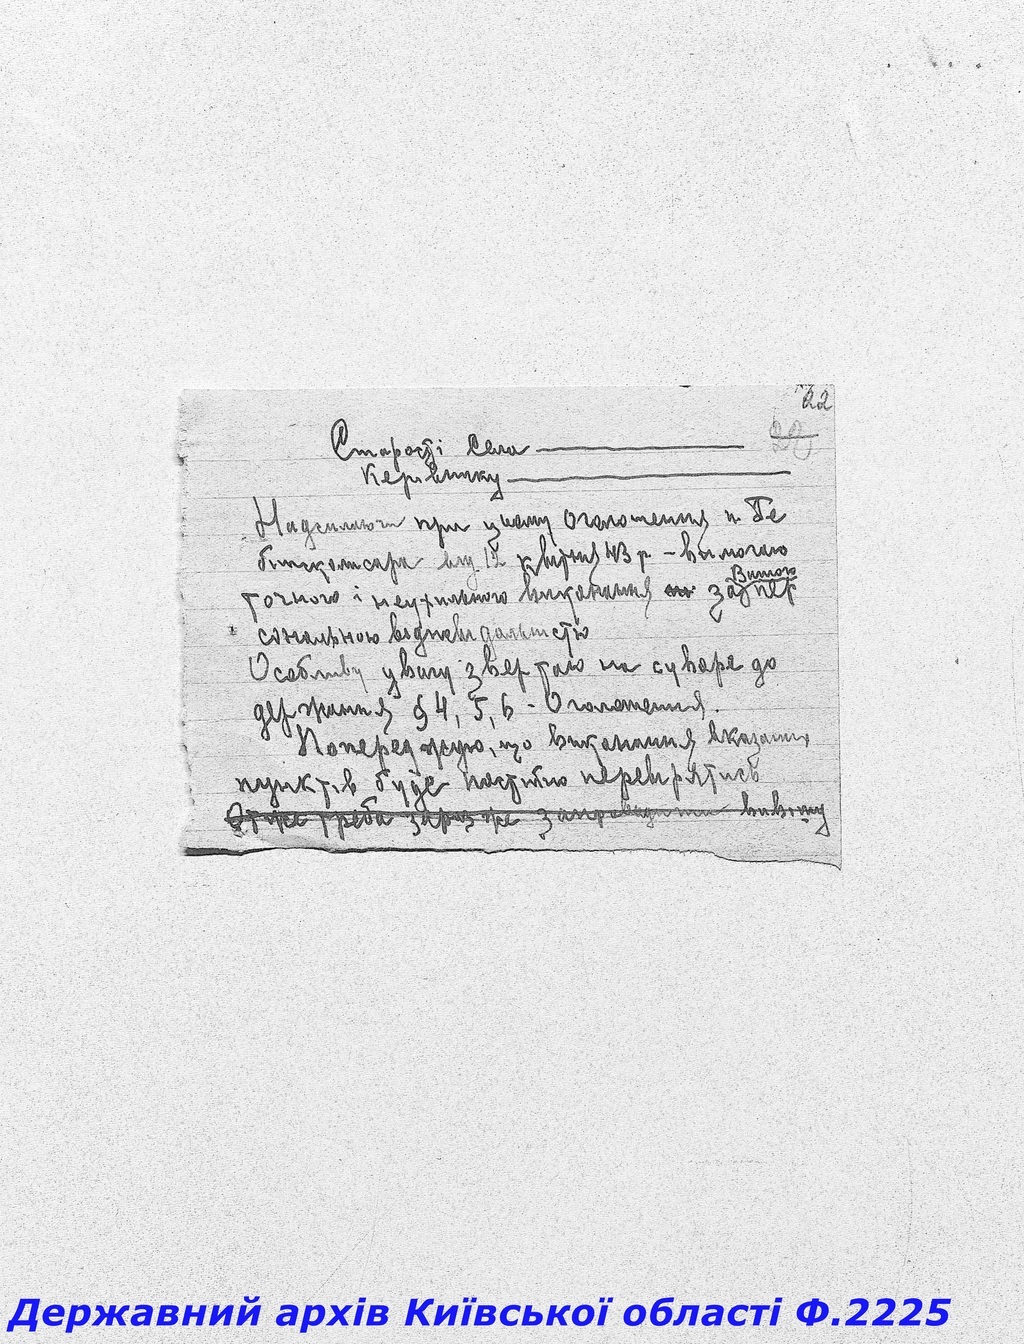 22
Старості села
Керівнику
Надсилаючи при цьому Оголошення п. Ге
бітскомісара від 12 квітня 43 р. - вимагаю
точного і неухильного виконання за Вашою пер
сональною відповідальністю
Особливу увагу звертаю на суворе до
держання § 4, 5, 6 - Оголошення.
Попереджую, що виконання вказаних
пунктів буде постійно перевірятись
Отже треба зараз же запровадити
Державний архів Київської області Ф.2225